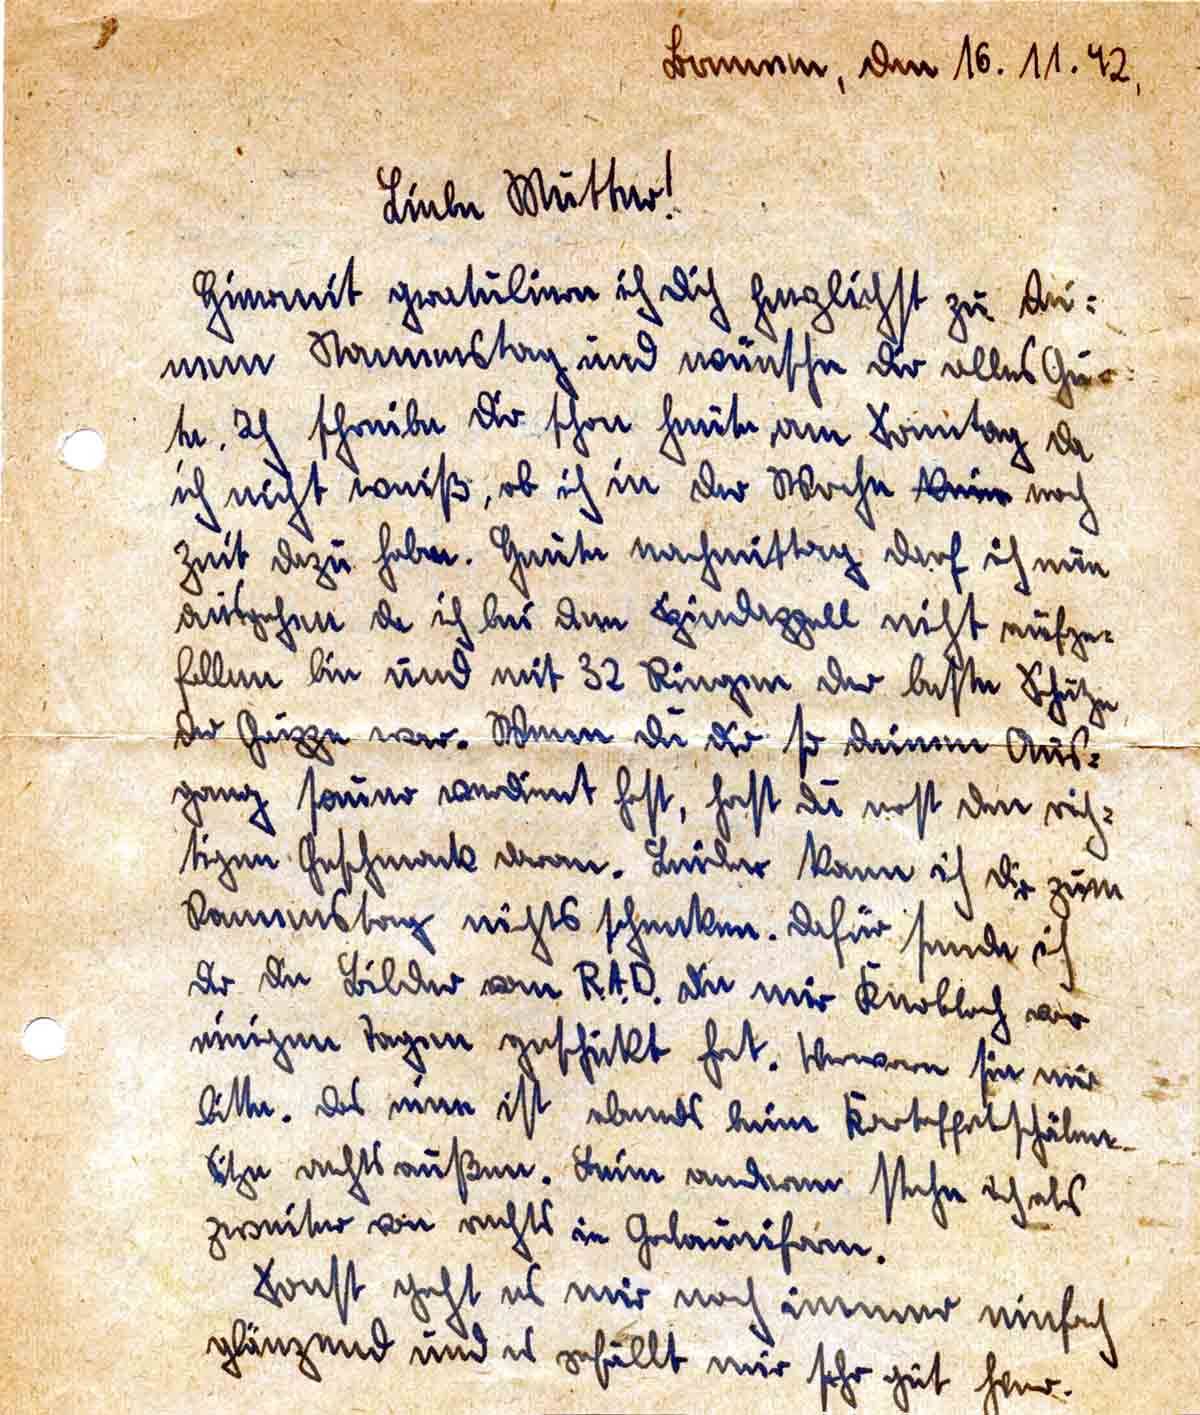 Bremen, den 16. 11. 42,
Liebe Mutter!
Hiermit gratuliere ich dich herzlichst zu dei-
nem Namenstag und wünsche dir alles Gu-
te. Ich schreibe dir schon heute, am Sonntag da
ich nicht weiß, ob ich in der Woche noch
Zeit dazu habe. Heute nachmittag darf ich nun
ausgehen da ich bei dem Spindappell nicht aufge-
fallen bin und mit 32 Ringen der beste Schütze
der Gruppe war. Wenn du dir so deinen Aus-
gang sauer verdient hast, hast du erst den rich-
tigen Geschmack daran. Leider kann ich dir zum
Namenstag nichts schenken. Dafür sende ich
dir die Bilder vom R.A.D. die mir Knobloch vor
einigen Tagen geschikt hat. Verware sie mir
bitte. Das eine ist abends beim Kartoffelschälen
sitze rechts außen. Beim anderen stehe ich als
zweiter von rechts in
Sonst geht es mir noch immer einfach
glänzend und es gefällt mir sehr gut hier.